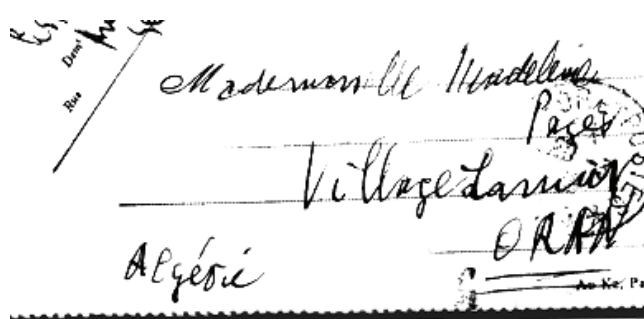 Dem^t
Rue
Mademoiselle Madeleine
Pagès
Village Lamur
ORAN
Algérie